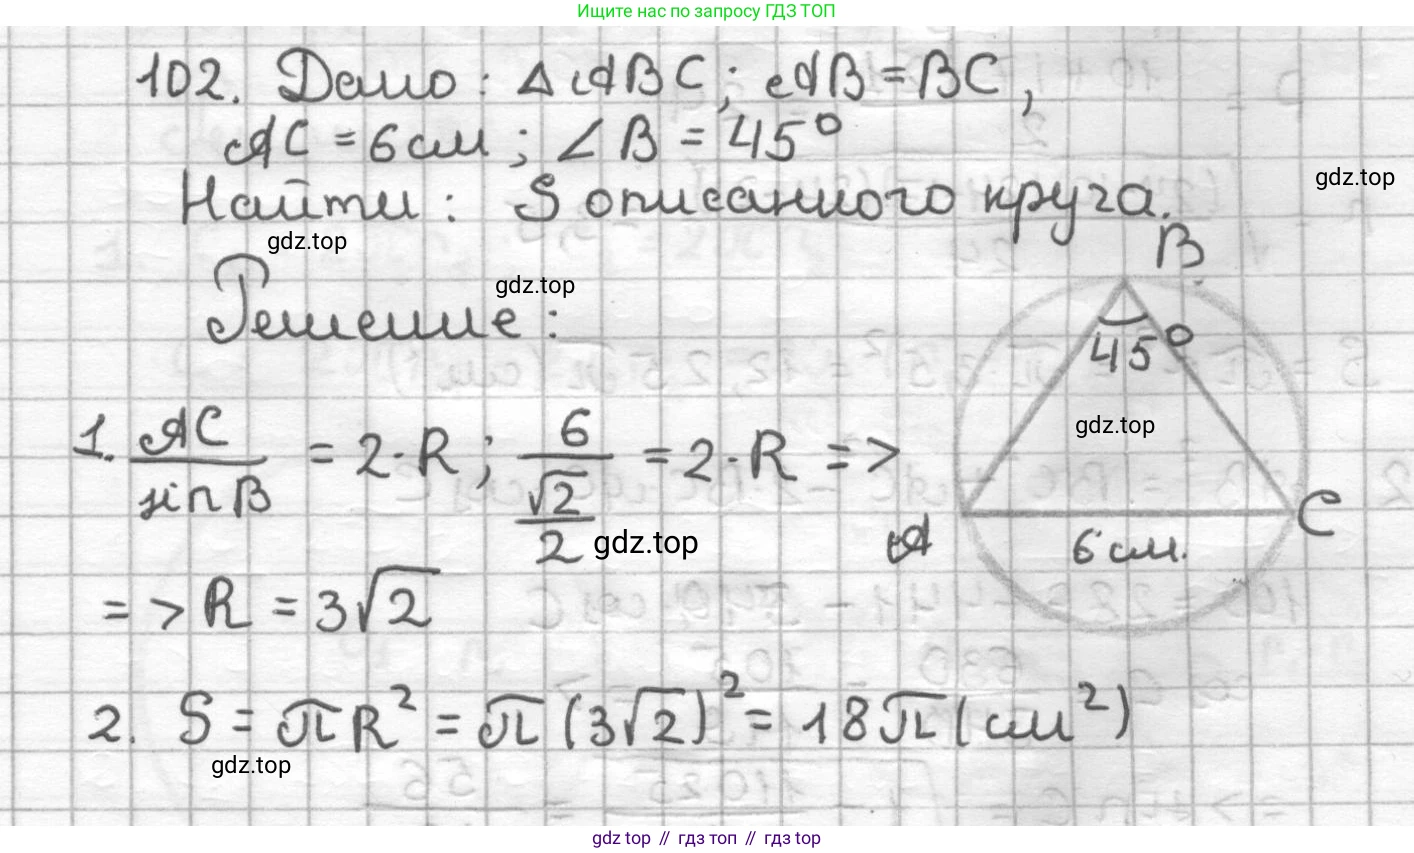 Ищите нас по запросу ГДЗ ТОП
102. Дано: ΔABC; AB = BC,
AC = 6 см; ∠B = 45°
gdz.top
Найти: S описанного круга.
gdz.top
B
Решение:
gdz.top
45°
gdz.top
1. AC/sin B = 2·R; 6/(√2/2) = 2·R =>
gdz.top
A
C
6 см.
=> R = 3√2
2. S = πR² = π(3√2)² = 18π(см²)
gdz.top
gdz.top // гдз топ // гдз top